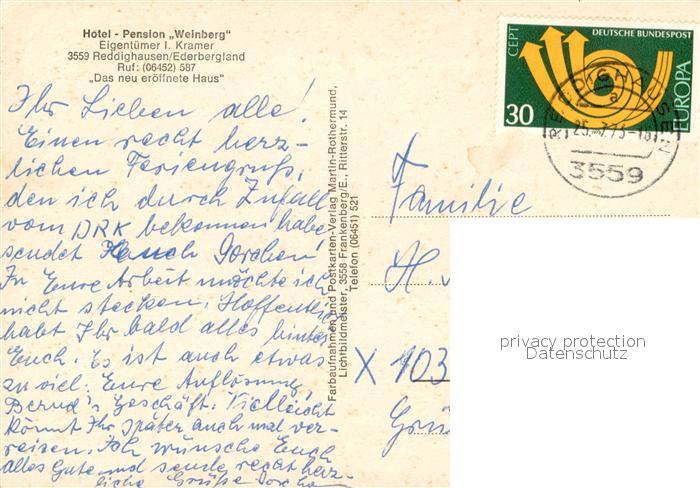 Hotel - Pension „Weinberg"
Eigentümer I. Kramer
3559 Reddighausen/Ederbergland
Ruf: (06452) 587
„Das neu eröffnete Haus"
Ihr Lieben alle!
Einen recht herz-
lichen Feriengruß,
den ich durch Zufall
vom DRK bekommen habe
sendet Euch Dorchen!
In Eure Arbeit möchte ich
nicht stecken. Hoffentlich
habt Ihr bald alles hinter
Euch. Es ist auch etwas
zu viel. Eure Auflösung,
Bernd's Geschäft. Vielleicht
könnt Ihr später auch mal ver-
reisen. Ich wünsche Euch
alles Gute und sende recht herz-
liche Grüße Dorchen
Farbaufnahmen und Postkarten-Verlag Martin-Rothermund,
Lichtbildmeister, 3558 Frankenberg/E., Ritterstr. 14
Telefon (06451) 521
CEPT
DEUTSCHE BUNDESPOST
EUROPA
30
a
3559
Familie
H.
X 103
Grü
privacy protection
Datenschutz